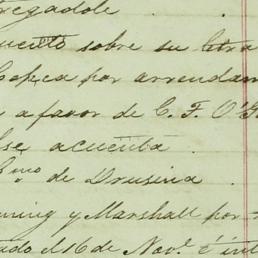 regadole
cuento sobre su letra
Copca por arrendam
a favor de C. F. O'G
se acuenta
mo de Drusina
ning y Marshall por
ado el 16 de Nov.e é int